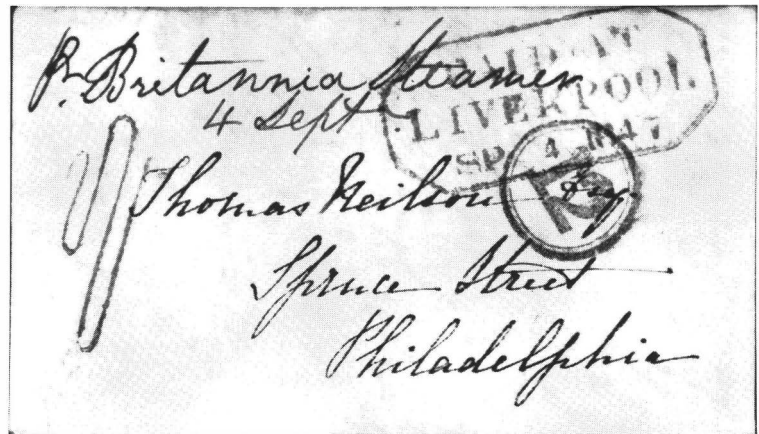 Pr. Britannia Steamer
4 Sept
PAID AT
LIVERPOOL
SP 4 1847
Thomas Neilson Esq
Spruce Street
Philadelphia